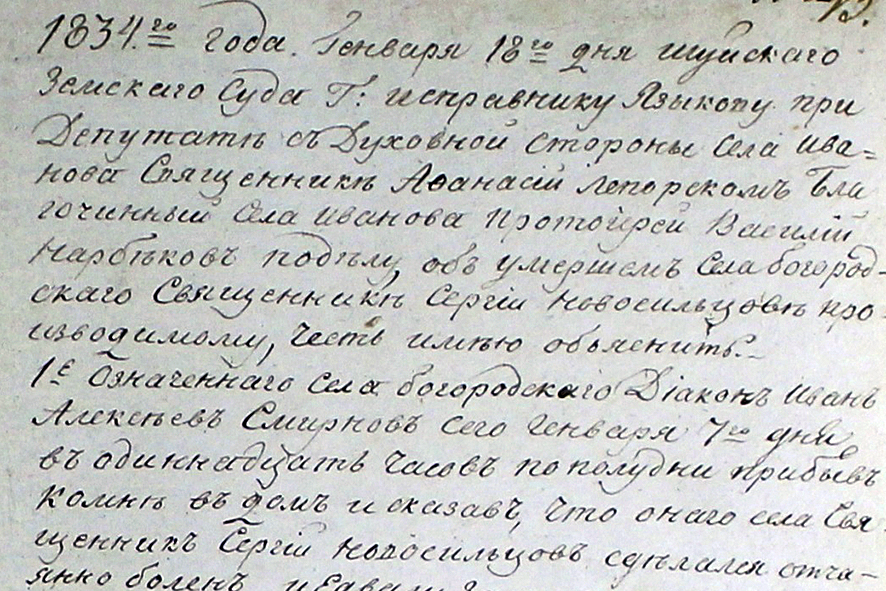 1834.го года. Генваря 18го дня шуйскаго
Земскаго Суда Г: исправнику Языкову при
Депутатѣ съ Духовной стороны села Ива=
нова Священникѣ Аѳанасіи Лепорскомъ Бла
гочинный села Иванова Протоіерей Василій
Нарбѣковъ подѣлу объ умершемъ села богород-
скаго Священникѣ Сергіи Новосильцовѣ про-
изводимому, честь имѣю объяснить.
1е Означеннаго села богородскаго Діаконъ Иванъ
Алексѣевъ Смирновъ сего Генваря 7го дня
въ одиннадцать часовъ пополудни прибывъ
комнѣ въ домъ и сказавъ, что онаго села Свя
щенникъ Сергій Новосильцовъ сдѣлался отча-
янно боленъ